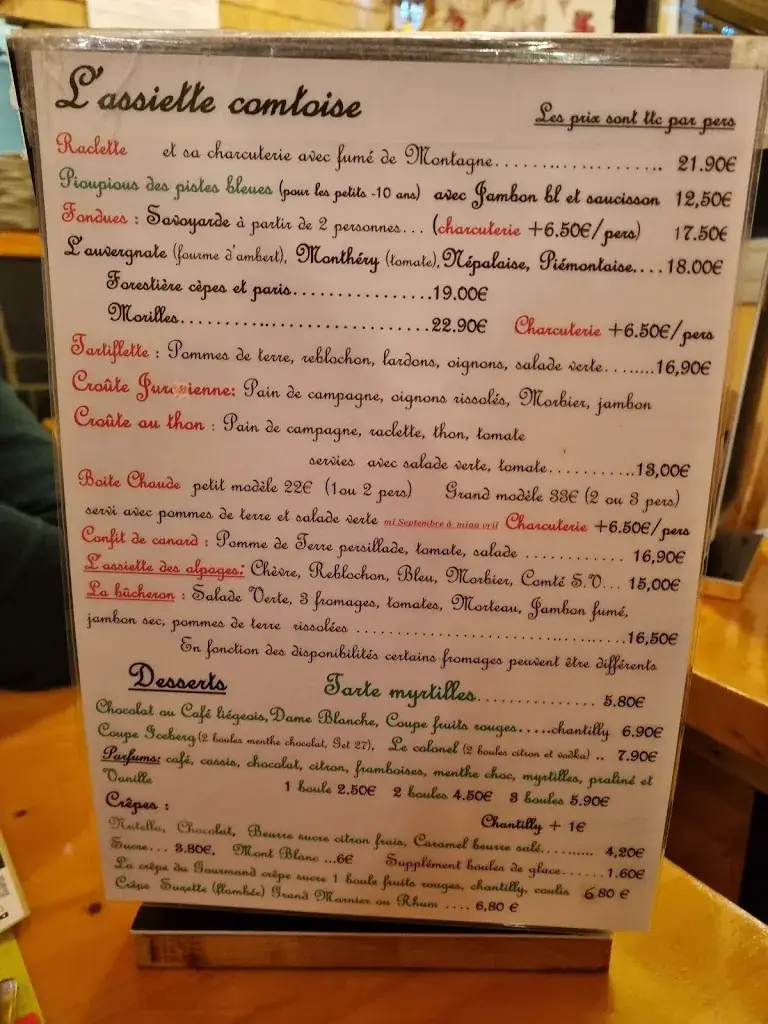 L'assiette comtoise
Les prix sont ttc par pers
Raclette et sa charcuterie avec fumé de Montagne.................... 21.90€
Pioupious des pistes bleues (pour les petits -10 ans) avec Jambon bl et saucisson 12,50€
Fondues : Savoyarde à partir de 2 personnes... (charcuterie +6.50€/pers) 17.50€
L'auvergnate (fourme d'ambert), Monthéry (tomate), Népalaise, Piémontaise....18.00€
Forestière cèpes et paris................19.00€
Morilles............................22.90€ Charcuterie +6.50€/pers
Tartiflette : Pommes de terre, reblochon, lardons, oignons, salade verte.........16,90€
Croûte Jurassienne: Pain de campagne, oignons rissolés, Morbier, jambon
Croûte au thon : Pain de campagne, raclette, thon, tomate
servies avec salade verte, tomate...........13,00€
Boite Chaude petit modèle 22€ (1ou 2 pers) Grand modèle 33€ (2 ou 3 pers)
servi avec pommes de terre et salade verte mi Septembre à Charcuterie +6.50€/pers
Confit de canard : Pomme de Terre persillade, tomate, salade ............ 16,90€
L'assiette des alpages: Chèvre, Reblochon, Bleu, Morbier, Comté S.V... 15,00€
La bûcheron : Salade Verte, 3 fromages, tomates, Morteau, Jambon fumé,
jambon sec, pommes de terre rissolées ................................16,50€
En fonction des disponibilités certains fromages peuvent être différents
Desserts Tarte myrtilles............... 5.80€
Chocolat ou Café liégeois, Dame Blanche, Coupe fruits rouges.....chantilly 6.90€
Coupe Iceberg (2 boules menthe chocolat, Get 27), Le colonel (2 boules citron et vodka) .. 7.90€
Parfums: café, cassis, chocolat, citron, framboises, menthe choc, myrtilles, praliné et
Vanille 1 boule 2.50€ 2 boules 4.50€ 3 boules 5.90€
Crêpes : Chantilly + 1€
Nutella, Chocolat, Beurre sucre citron frais, Caramel beurre salé........... 4,20€
Sucre... 3.80€, Mont Blanc ...6€ Supplément boules de glace.......1.60€
La crêpe du Gourmand crêpe sucre 1 boule fruits rouges, chantilly, coulis 6.80 €
Crêpe Suzette (flambée) Grand Marnier ou Rhum .... 6,80 €